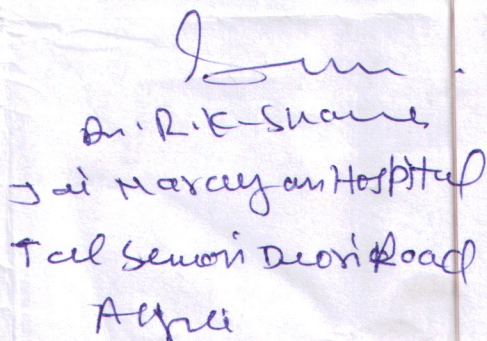 Dr. R.K. Sharma
Jai Narayan Hospital
Tal Semori Deori Road
Agra